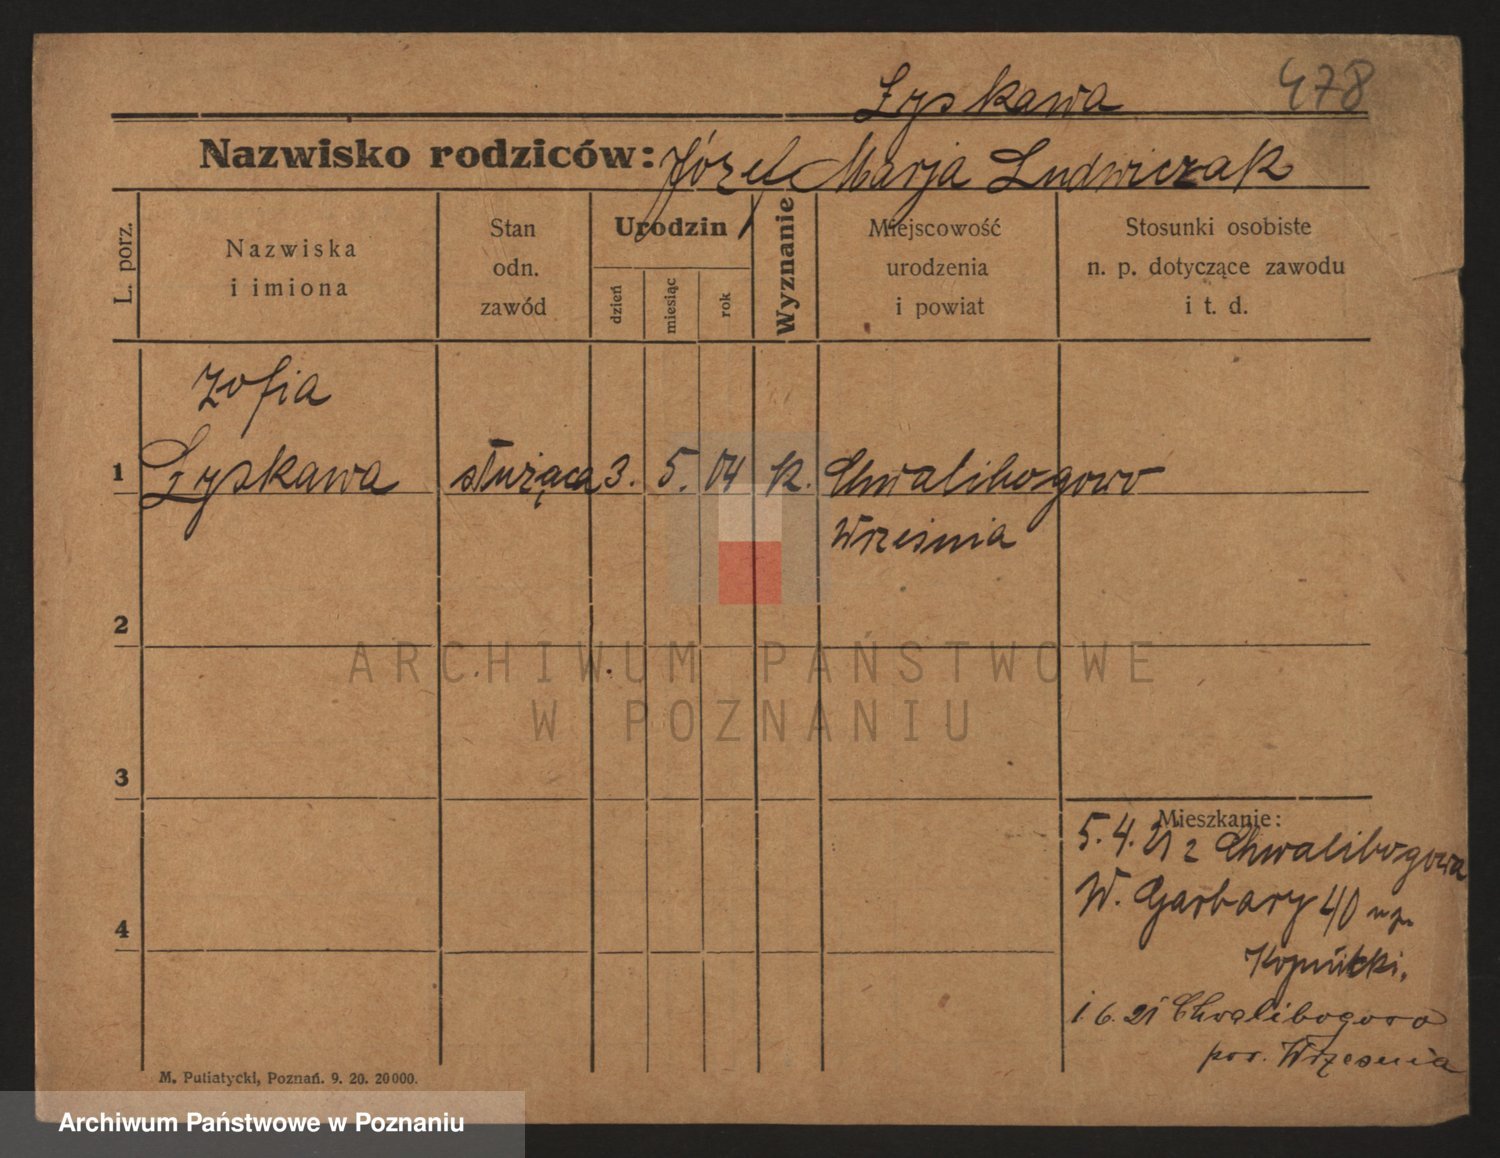 Łyskawa 478
Nazwisko rodziców: Józef Marja Ludwiczak
L. porz.
Nazwiska
i imiona
Stan
odn.
zawód
Urodzin
dzień
miesiąc
rok
Wyznanie
Miejscowość
urodzenia
i powiat
Stosunki osobiste
n. p. dotyczące zawodu
i t. d.
Zofia
1 Łyskawa służąca 3. 5. 04 k. Chwalibogowo
Września
2
ARCHIWUM PAŃSTWOWE
W POZNANIU
3
Mieszkanie:
5. 4. 21 z Chwalibogowa
W. Garbary 40
4
1. 6. 21 Chwalibogowo
pow. Września
M. Putiatycki, Poznań. 9. 20. 20000.
Archiwum Państwowe w Poznaniu